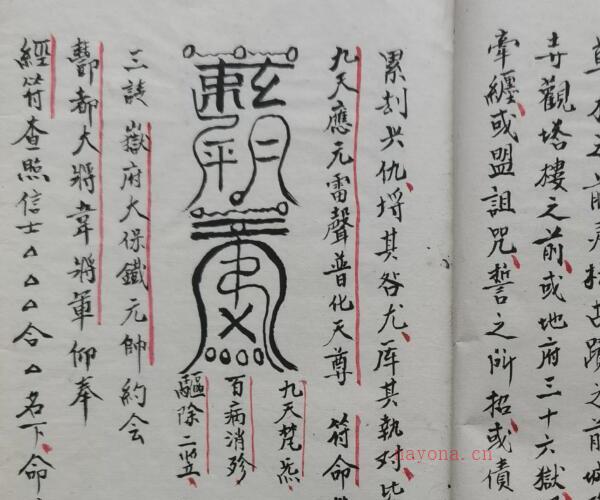 之前於古蹟之前城
寺觀塔樓之前或地府三十六獄
牽纏或盟詛咒誓之所招或債
累刦仇其咎尤其執對比
九天應元雷聲普化天尊 符命
九天梵炁
百病消殄
驅除二竪
三 嶽府大保鐵元帥約会
酆都大將韋將軍仰奉
經符查照信士△△△合△名下命
nayona.cn